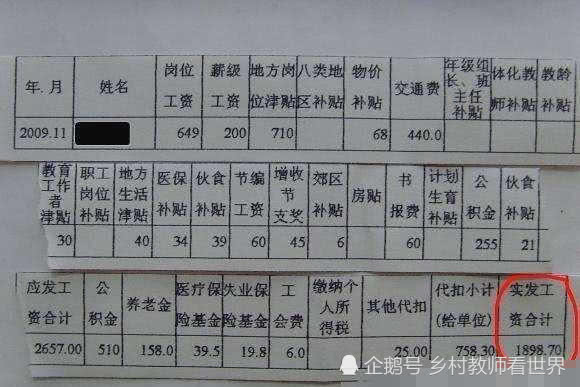 年.月 姓名 岗位工资 薪级工资 地方岗位津贴 八类地区补贴 物价补贴 交通费 年级组长、班主任补贴 体化教师补贴 教龄补贴
2009.11 649 200 710 68 440.0
教育工作者津贴 职工岗位补贴 地方生活津贴 医保补贴 伙食补贴 节编工资 增收节支奖 郊区补贴 房贴 书报费 计划生育补贴 公积金 伙食补贴
30 40 34 39 60 45 6 60 255 21
应发工资合计 公积金 养老金 医疗保险基金 失业保险基金 工会费 缴纳个人所得税 其他代扣 代扣小计(给单位) 实发工资合计
2657.00 510 158.0 39.5 19.8 6.0 25.00 758.30 1898.70
企鹅号 乡村教师看世界